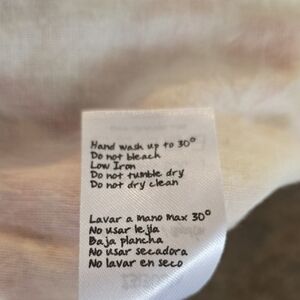 Hand wash up to 30°
Do not bleach
Low Iron
Do not tumble dry
Do not dry clean
Lavar a mano max 30°
No usar lejía
Baja plancha
No usar secadora
No lavar en seco